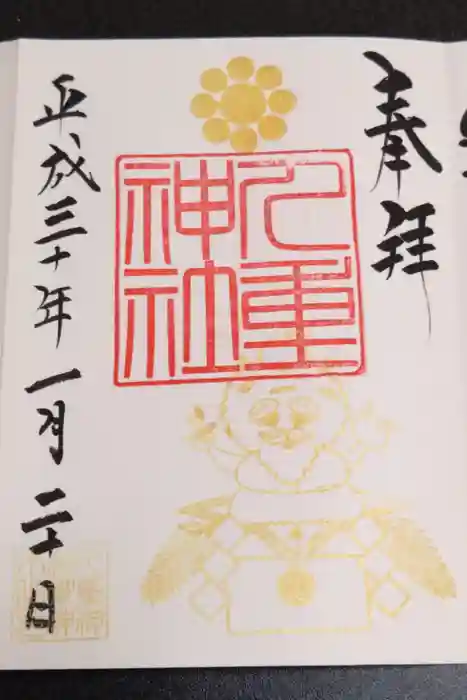 奉拝
九重
神社
平成三十年一月二十日